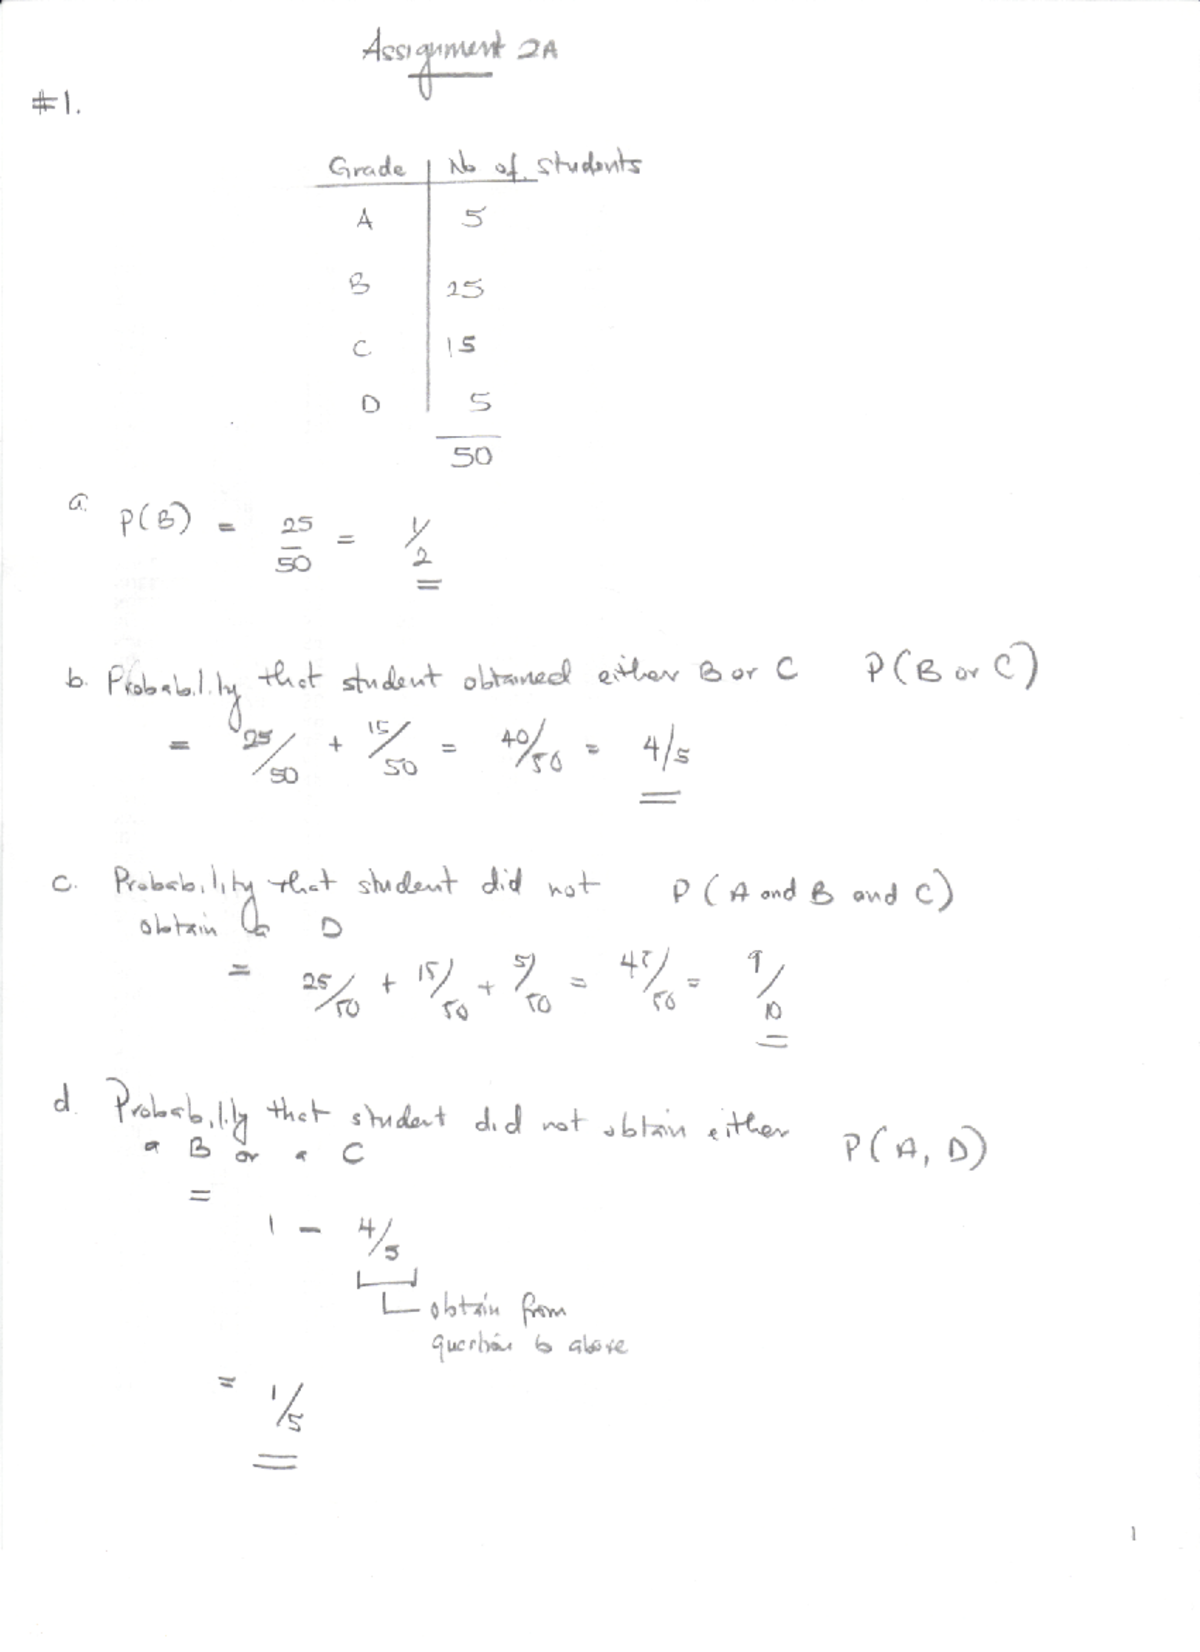 Assignment 2A
#1.
Grade No of students
A 5
B 25
C 15
D 5
50
a. P(B) = 25/50 = 1/2
b. Probability that student obtained either B or C P(B or C)
= 25/50 + 15/50 = 40/50 = 4/5
c. Probability that student did not P(A and B and C)
obtain a D
= 25/50 + 15/50 + 5/50 = 45/50 = 9/10
d. Probability that student did not obtain either P(A, D)
a B or a C
=
1 - 4/5
obtain from
question b above
= 1/5
1